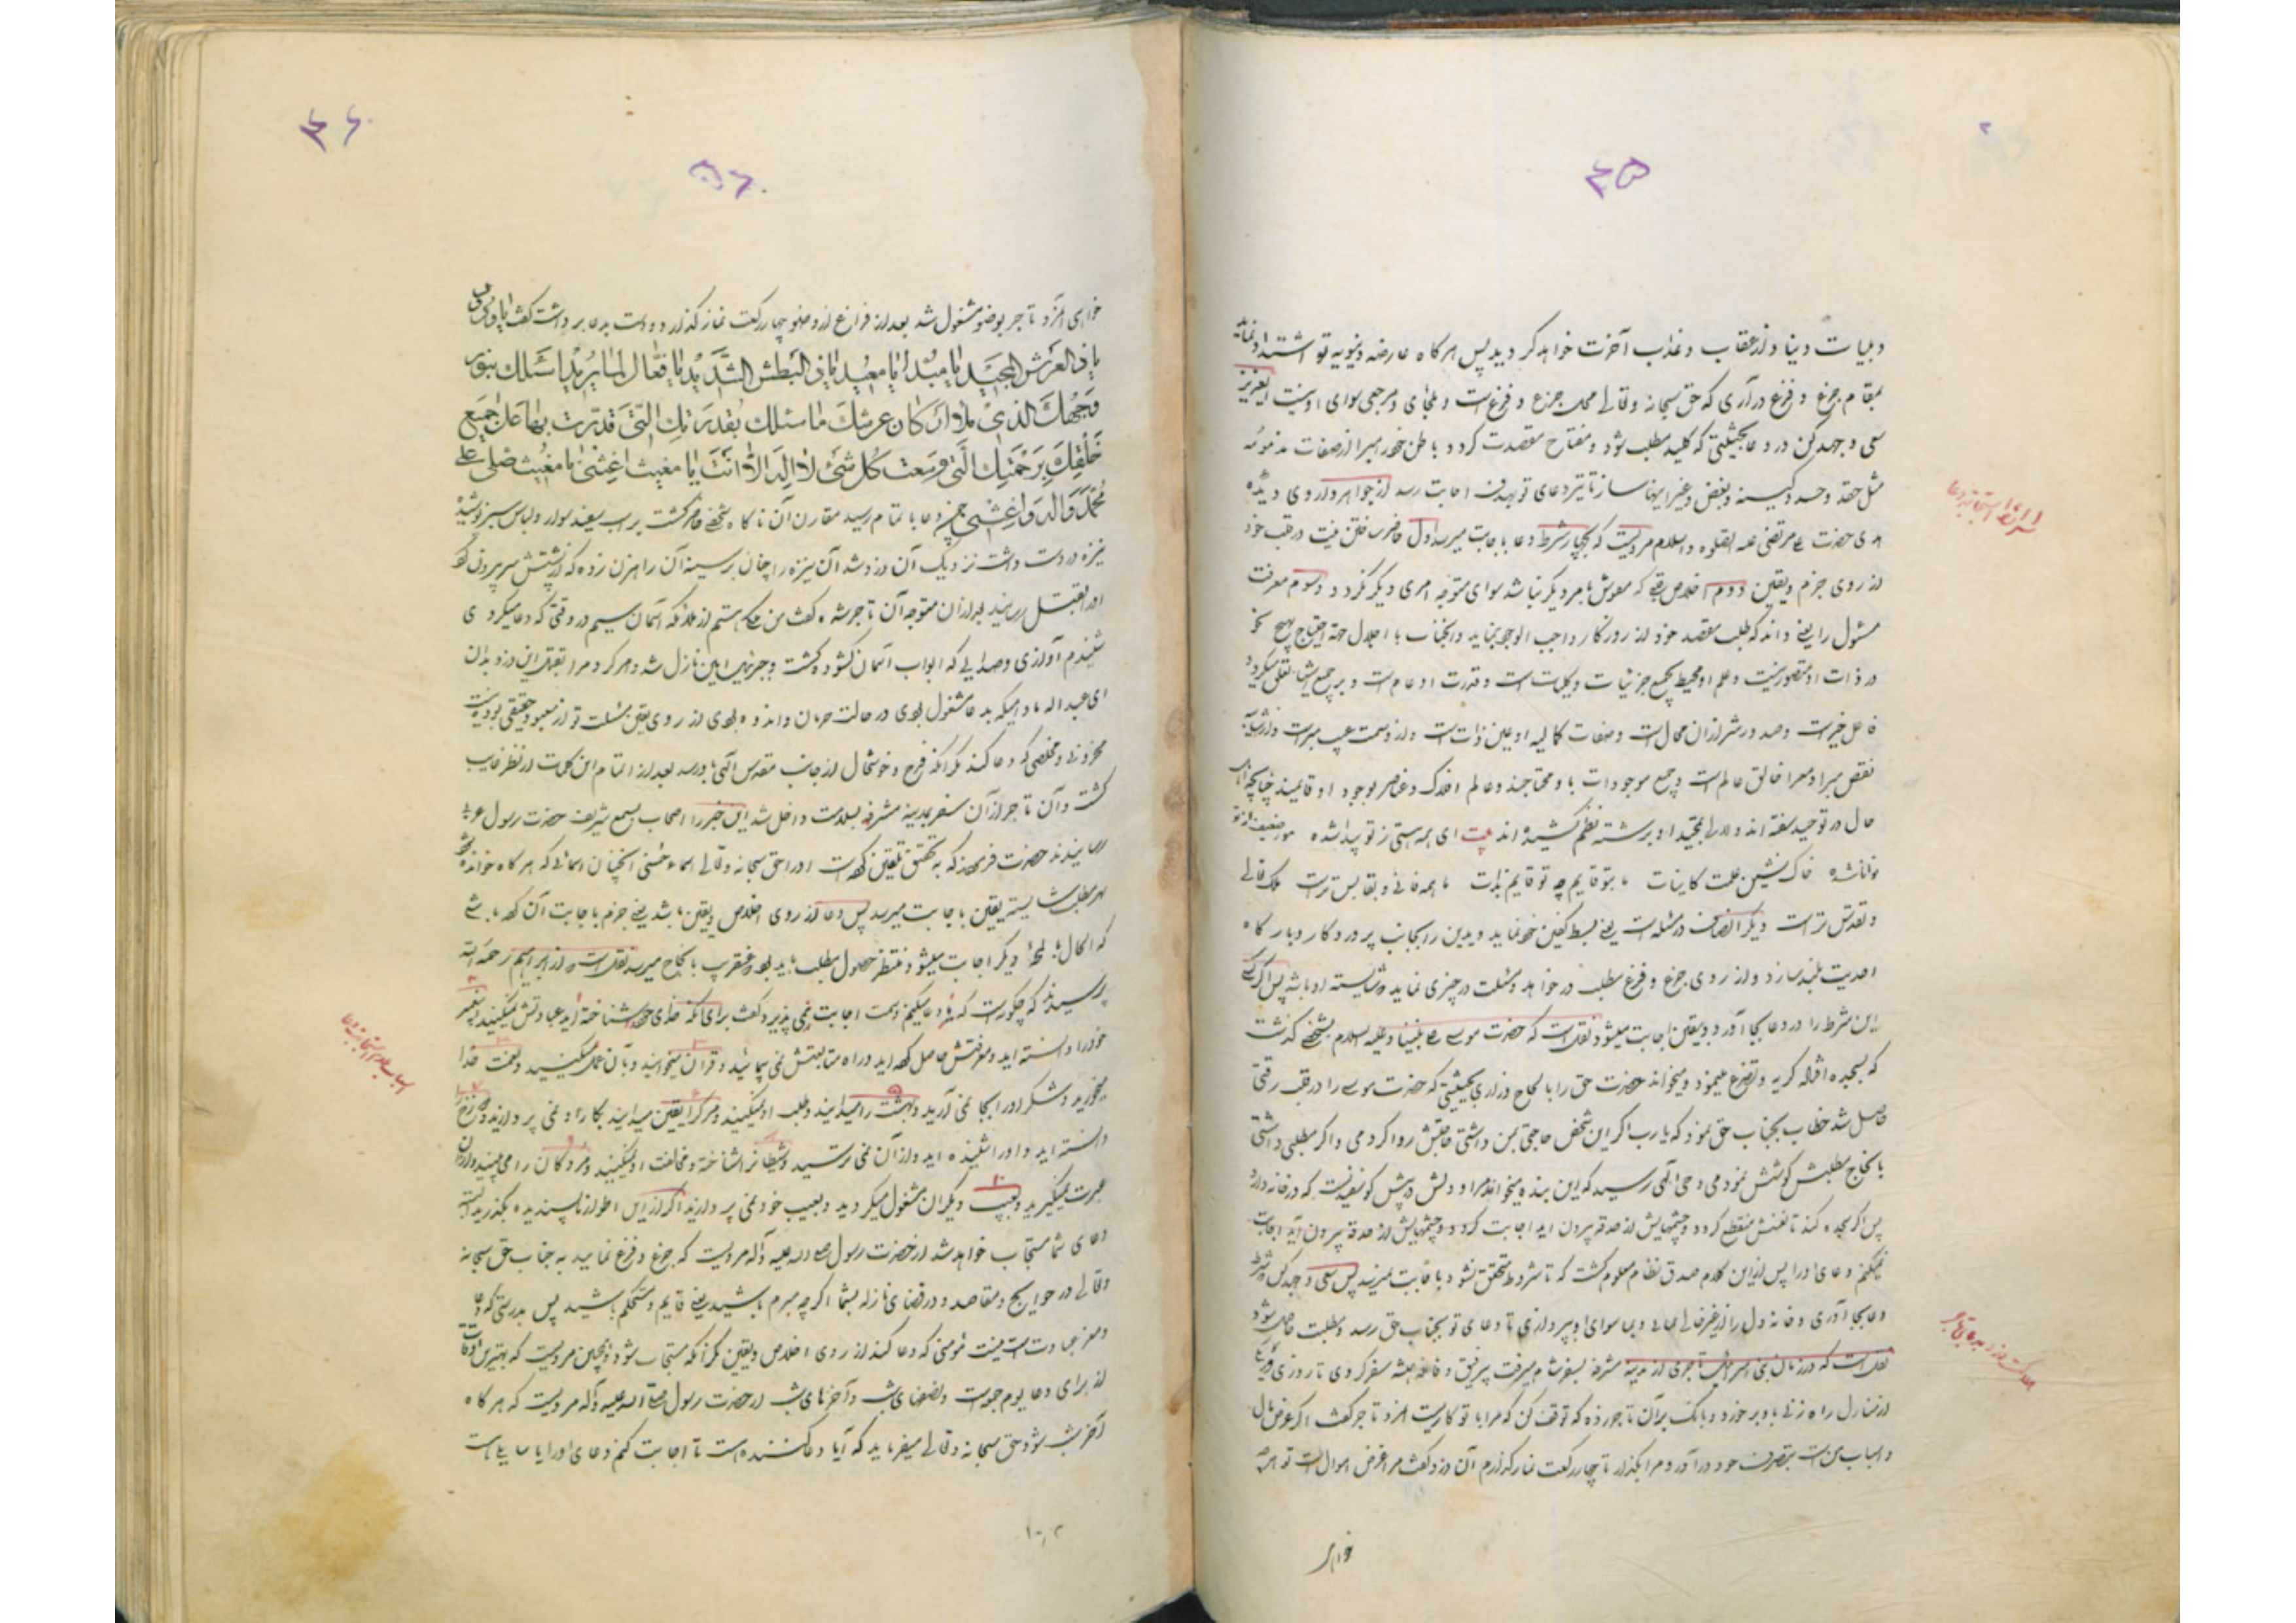 و بلیات دنیا و از عقاب و عذاب آخرت خواهد کردید پس هر کاه عارضه دنیویه تو اشتداد نماید
بمقام جزع و فزع در آری که حق سبحانه و تعالی محل جزع و فزع است و ملجأی و مرجعی سوای او نیست ای عزیز
سعی و جهد کن در دعا بحیثیتی که کلید مطلب شود و مفتاح مقصدت کردد باطن خود را مبرا از صفات مذمومه
مثل حقد و حسد و کینه و بغض و غیر اینها ساز تا تیر دعای تو بهدف اجابت رسد از جواهر
حضرت مرتضی علیه الصلوه والسلام مرویست که بچهار شرط دعا باجابت میرسد اول حاضر ساختن نیت در قلب خود
از روی جزم و یقین دوم اخلاص که بامر دیگر نباشد سوای متوجه امری دیگر نکردد و سوم معرفت
مسئول را یعنی داند که طلب مقصد خود از روزکار واجب الوجود نماید و انجناب با اجلال جهة احتیاج بهیچ نحو
در ذات او متصور نیست و علم او محیط بجمیع جزئیات و کلیات است و قدرت او عام است و بر جمیع اشیا تعلق میکیرد
فاعل خیر است و صدور شر از ان محال است و صفات کمالیه او عین ذات است و از وصمت عیب مبراست و از شائبه
نقص مبرا و معرا خالق عالم است و جمیع موجودات باو محتاجند و عالم افلاک و عناصر بوجود او قایمند چنانچه
حال در توحید سفته اند و برشته نظم کشیده اند بیت ای همه هستی ز تو پیدا شده خاک ضعیف از تو
توانا شده خاک نشین علمت کاینات ما بتو قایم چو تو قایم بذات ما همه فانی و بقا بس تراست ملک تعالی
و تقدس تراست دیکر انصاف در مسئله است یعنی بسط کفین خود نماید و یدین را بجانب پروردکار و بارکاه
احدیت بلند سازد و از روی جزع و فزع مطلب در خواهد و مسئلت در چیزی نماید که شایسته او باشد پس اکر کسی
این شرط را در دعا بجا آورد بیقین اجابت میشود نقلست که حضرت موسی علی نبینا و علیه السلام بشخصی کذشت
که بسجده افتاده کریه و تضرع مینمود و میخواند حضرت حق را بالحاح و زاری بحیثیتی که حضرت موسی را در قلب رقتی
حاصل شد خطاب بجناب حق نمود که یا رب اکر این شخص حاجتی بمن داشتی حاجتش روا کردمی و اکر مطلبی داشتی
بانجاح مطلبش کوشش نمودمی وحی الهی رسید که این بنده میخواند مرا و دلش در پیش کوسفندیست که در خانه دارد
پس اکر سجده کند تا نفسش منقطع کردد و چشمهایش از حدقه بیرون آید اجابت
نمیکنم دعای او را پس از این کلام صدق نظام معلوم کشت که تا شروط متحقق نشود باجابت نمیرسد پس سعی و جهد کن
دعا بجا آوری و خانه دل را از غیر خالی نمائی و بما سوای او نپردازی تا دعای تو بجناب حق رسد و مطلبت حاصل شود
نقلست که در زمان نبی تاجری از مدینه مشرفه بسفر شام میرفت بیرفیق و قافله همیشه سفر کردی تا روزی در
از منازل راه زنی باو برخورد و بانک بر آن تاجر زد که توقف کن که مرا با تو کاریست تاجر کفت اکر غرض مال
و اسباب من است بتصرف خود در آور و مرا بکذار تا چهار رکعت نماز کذارم آن دزد کفت مرا غرض اموال است تو هر چه
خواهی
شرایط استجابة دعا
خواهی تاجر بوضو مشغول شد بعد از فراغ از وضو چهار رکعت نماز کذارد و دست بدعا برداشت کفت یا ودود
یا ذی العرش المجید یا مبدأ یا معید یا ذی البطش الشدید یا فعال لما یرید اسئلک بنور
وجهک الذی ملأ ارکان عرشک و اسئلک بقدرتک التی قدرت بها علی جمیع
خلقک برحمتک التی وسعت کل شئ لا اله الا انت یا مغیث اغثنی یا مغیث صل علی
محمد و آله و اغثنی چون دعا باتمام رسید مقارن آن ناکاه شخصی ظاهر کشت بر اسب سفید سوار و لباس سبز پوشیده
نیزه در دست داشت نزدیک آن دزد شد آن نیزه را چنان بر سینه آن راهزن زد که از پشتش سر بیرون کرد
او را بقتل رسانید بعد از ان متوجه آن تاجر شده کفت من ملکی هستم از ملائکه آسمان سیم در وقتی که دعا میکردی
شنیدم آوازی و صدائی که ابواب آسمان کشوده کشت و جبرئیل امین نازل شد و امر کرد مرا بقتل این دزد بدان
ای عبد الله مادامیکه بدعا مشغول بودی در حالت حرمان و اندوه بودی از روی یقین مسئلت تو از معبود حقیقی بود نیست
محزونی و مخلصی که دعا کند مکر آنکه فرح و خوشحال از جانب مقدس الهی باو رسد بعد از اتمام این کلمات از نظر غایب
کشت و آن تاجر از آن سفر بمدینه مشرفه بسلامت داخل شد این خبر را اصحاب بسمع شریف حضرت رسول
رسانیدند حضرت فرمودند که به تحقیق تلقین کرده است او را حق سبحانه و تعالی اسماء حسنی آنچنان اسمائی که هر کاه خوانده شود
هر مطلب باجابت میرسد پس دعا از روی اخلاص و یقین باشد یعنی جزم باجابت آن کرده باشی
که الحال یا لمحه دیکر اجابت میشود و منتظر حصول مطلب باید بود عنقریب بانجاح میرسد نقلست از ابراهیم رحمه الله
پرسیدند که چکونه است که ما دعا میکنیم و سمت اجابت نمی پذیرد کفت برای آنکه خدای خود شناخته اید عبادتش نمیکنید پیغمبر
خود را دانسته اید و معرفتش حاصل کرده اید و راه متابعتش نمی پیمائید و قرآن میخوانید و بآن عمل نمیکنید و نعمت خدا
میخورید و شکر او را بجا نمی آرید و بهشت را میدانید و طلب او نمیکنید و مرک را یقین میدانید بکار او نمی پردازید و دوزخ
دانسته اید و او را شنیده اید و از آن نمی ترسید و شیطان را شناخته و مخالفت او نمیکنید و مردکان را می بینید و از ان
عبرت نمیکیرید و بعیب دیکران مشغول میکردید و بعیب خود نمی پردازید اکر از این اطوار ناپسندیده بکذرید البته
دعای شما مستجاب خواهد شد از حضرت رسول صلی الله علیه و آله مرویست که جزع و فزع نمایید به جناب حق سبحانه
و تعالی در حوایج و مقاصد و در قضای نازله بشما اکر چه مبرم باشید یعنی قایم و مستحکم باشید پس بدرستی که دعا
و مغز عبادت است نیست مؤمنی که دعا کند از روی اخلاص و یقین مکر آنکه مستجاب شود و همچنین مرویست که بهترین اوقات
از برای دعا یوم جمعه است و نصفهای شب و آخرهای شب از حضرت رسول صلی الله علیه و آله مرویست که هر کاه
آخر شب شود حق سبحانه و تعالی میفرماید که آیا دعا کننده هست تا اجابت کنم دعای او را یا سایلی هست